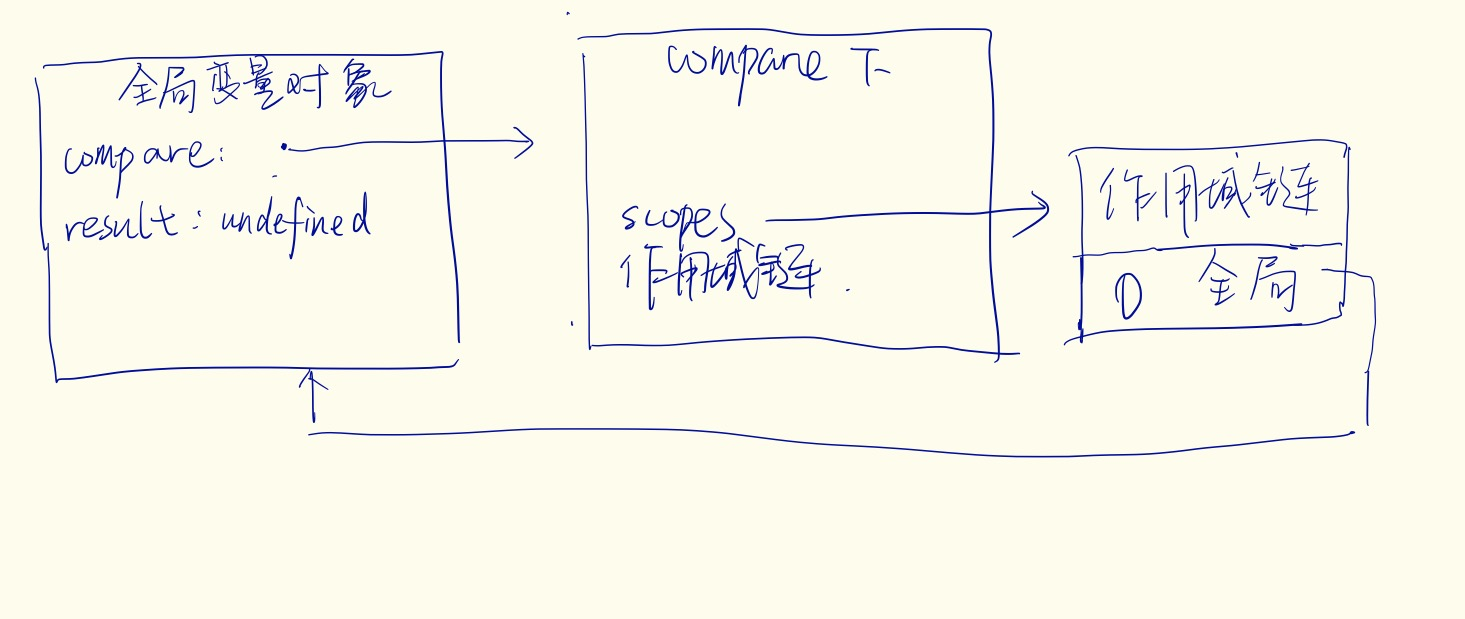 全局变量对象
compare:
result: undefined
compare 下
scopes
作用域链
作用域链
0 全局